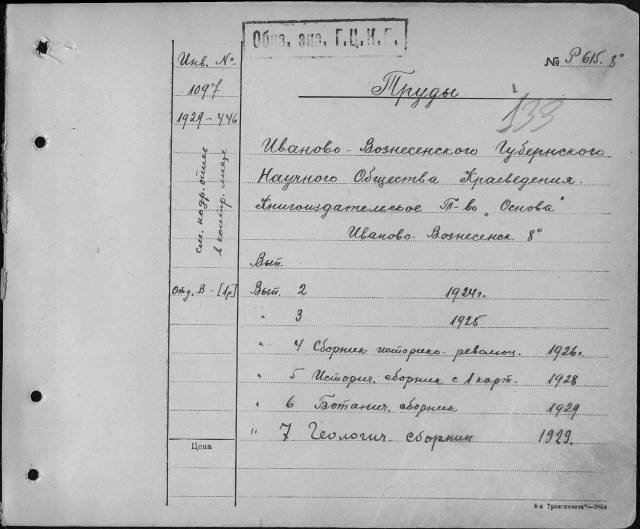 Обяз. экз. Г.Ц.К.П.
Инв. №
1097
1929-446
№ Р 615. 8°
Труды
133
Иваново-Вознесенского Губернского
Научного Общества Краеведения.
Книгоиздательское Т-во „Основа"
Иваново-Вознесенск. 8°
см. подр. опись
в контр. листе
Вып.
Отд. В-[1р]
Вып. 2 1924г.
" 3 1925
" 4 Сборник историко-революц. 1926г.
" 5 Историч. сборник с 1 карт. 1928
" 6 Ботанич. сборник 1929
" 7. Геологич. сборник 1929.
Цена